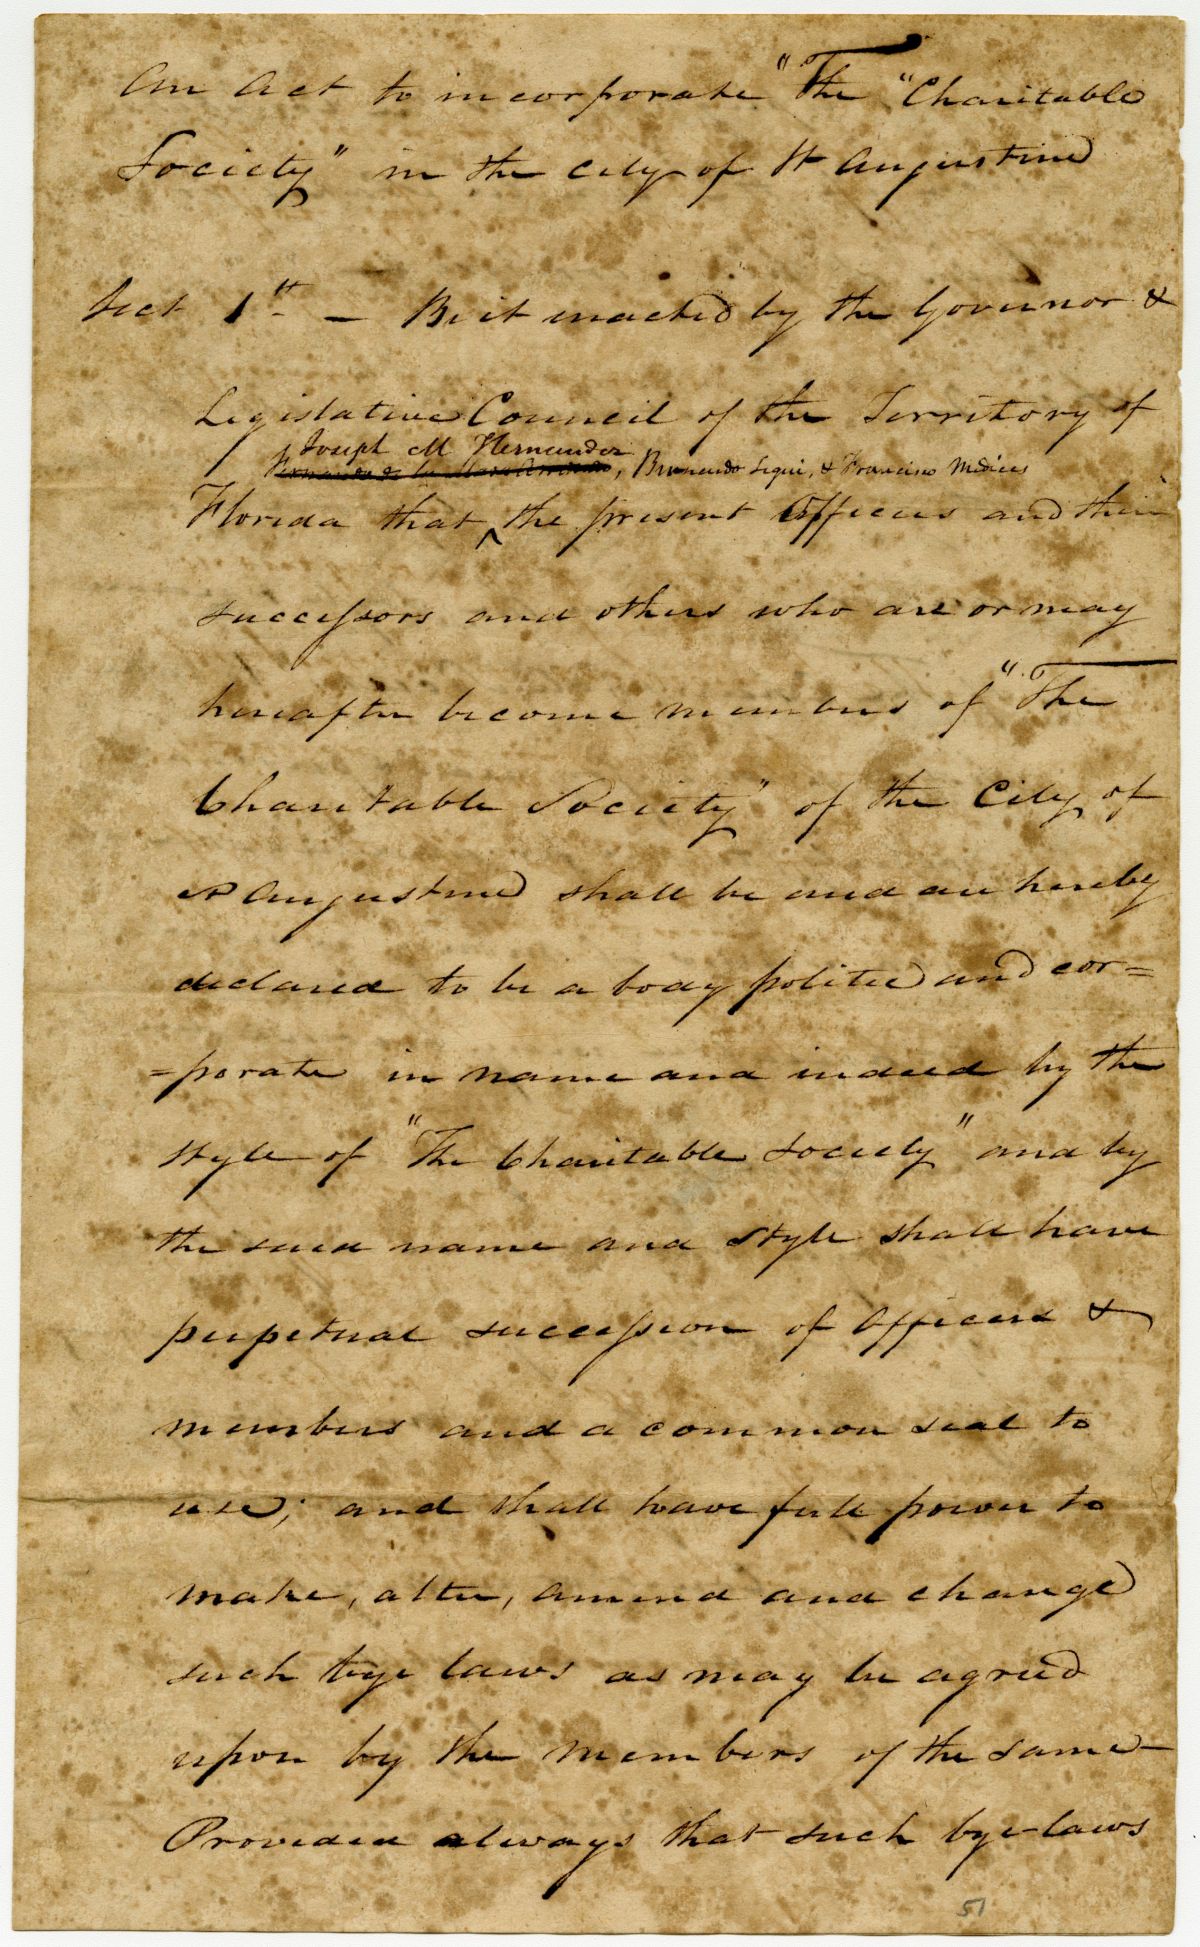 An Act to incorporate "The "Charitable
Society" in the City of St Augustine
Sect 1st - Be it enacted by the Governor &
Legislative Council of the Territory of
Joseph M Hernandez
, Bernardo Segui, & Francisco Medicis
Florida that ^ the present Officers and their
successors and others who are or may
hereafter become members of "The
Charitable Society" of the City of
St Augustine shall be and are hereby
declared to be a body politic and cor=
=porate in name and indeed by the
style of "The Charitable Society" and by
the said name and style shall have
perpetual succession of Officers &
members and a common seal to
use; and shall have full power to
make, alter, amend and change
such bye laws as may be agreed
upon by the members of the same-
Provided always that such bye-laws
51